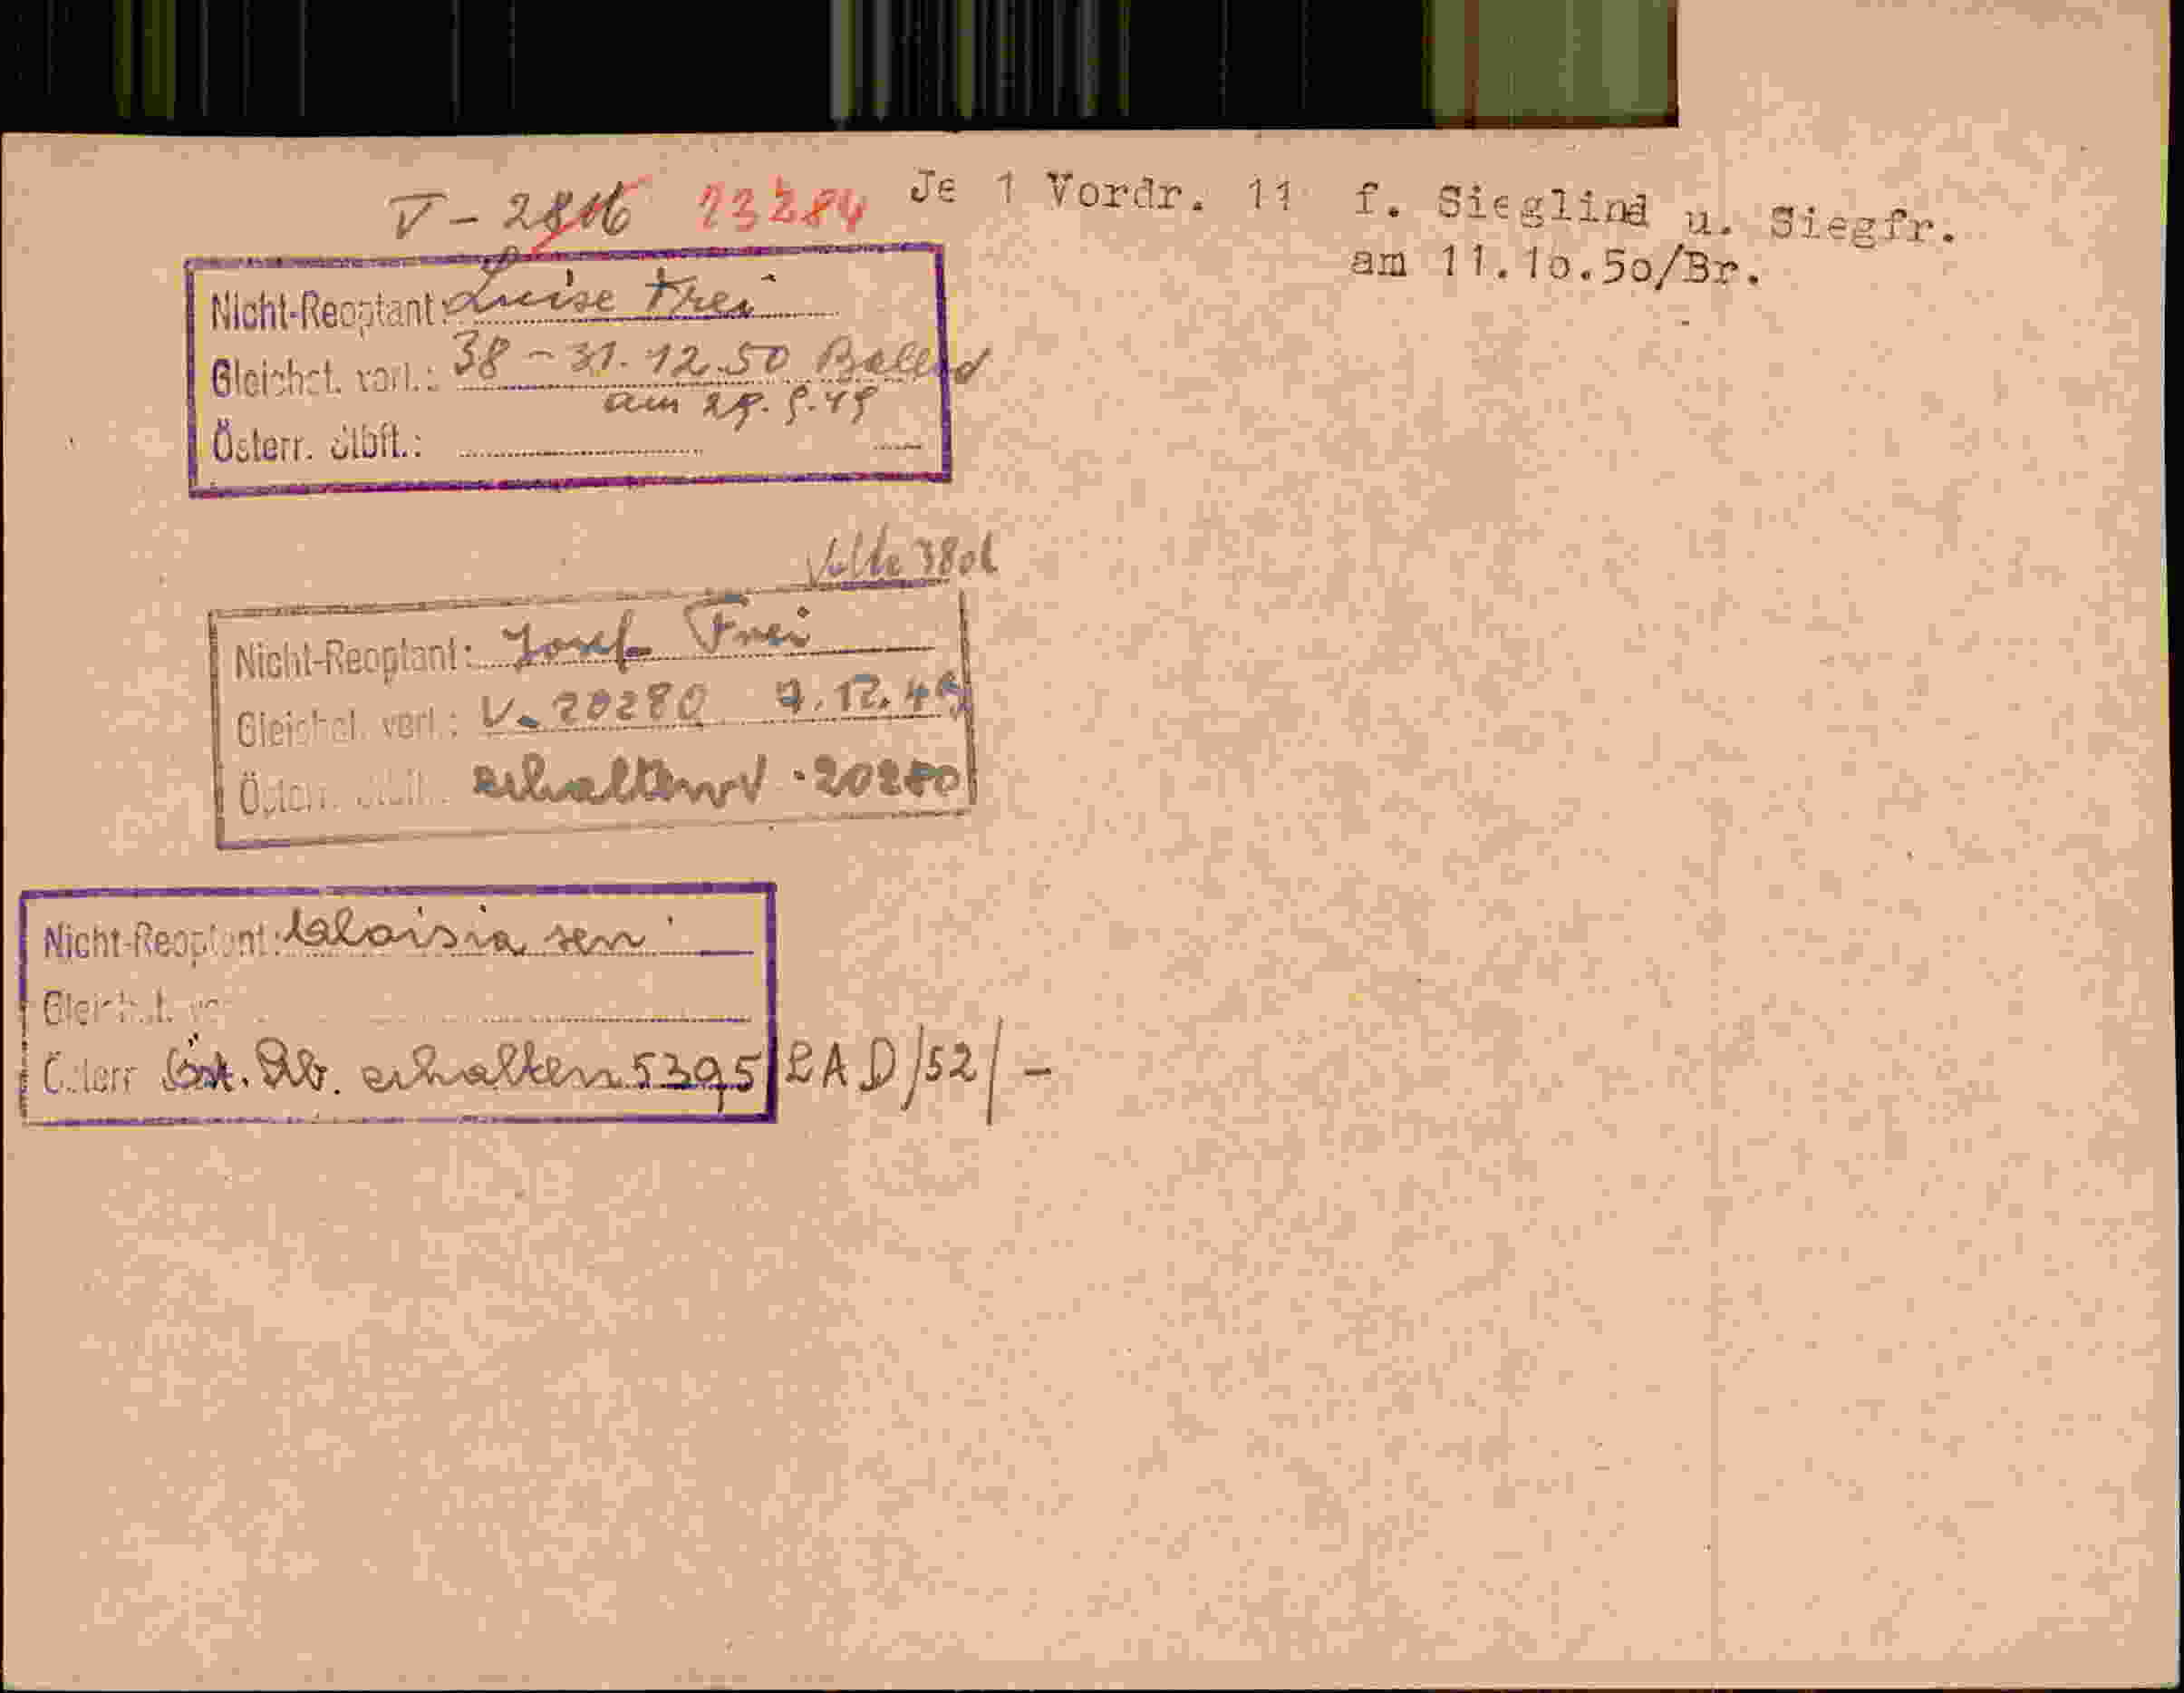 V - 2816 23284 Je 1 Vordr. 11 f. Sieglind u. Siegfr.
am 11.10.50/Br.
Nicht-Reoptant: Luise Frei
Gleichst. verl.: 38 - 31.12.50 Balland
am 29.9.49
Österr. Stbft.:
3801
Nicht-Reoptant: Josef Frei
Gleichst. verl.: V. 20280 7.12.49
Österr. Stbft.: erhalten V. 20280
Nicht-Reoptant: Aloisia sen
Gleichst. ver
Österr Öst. Stb. erhalten 5395/LAD/52/-